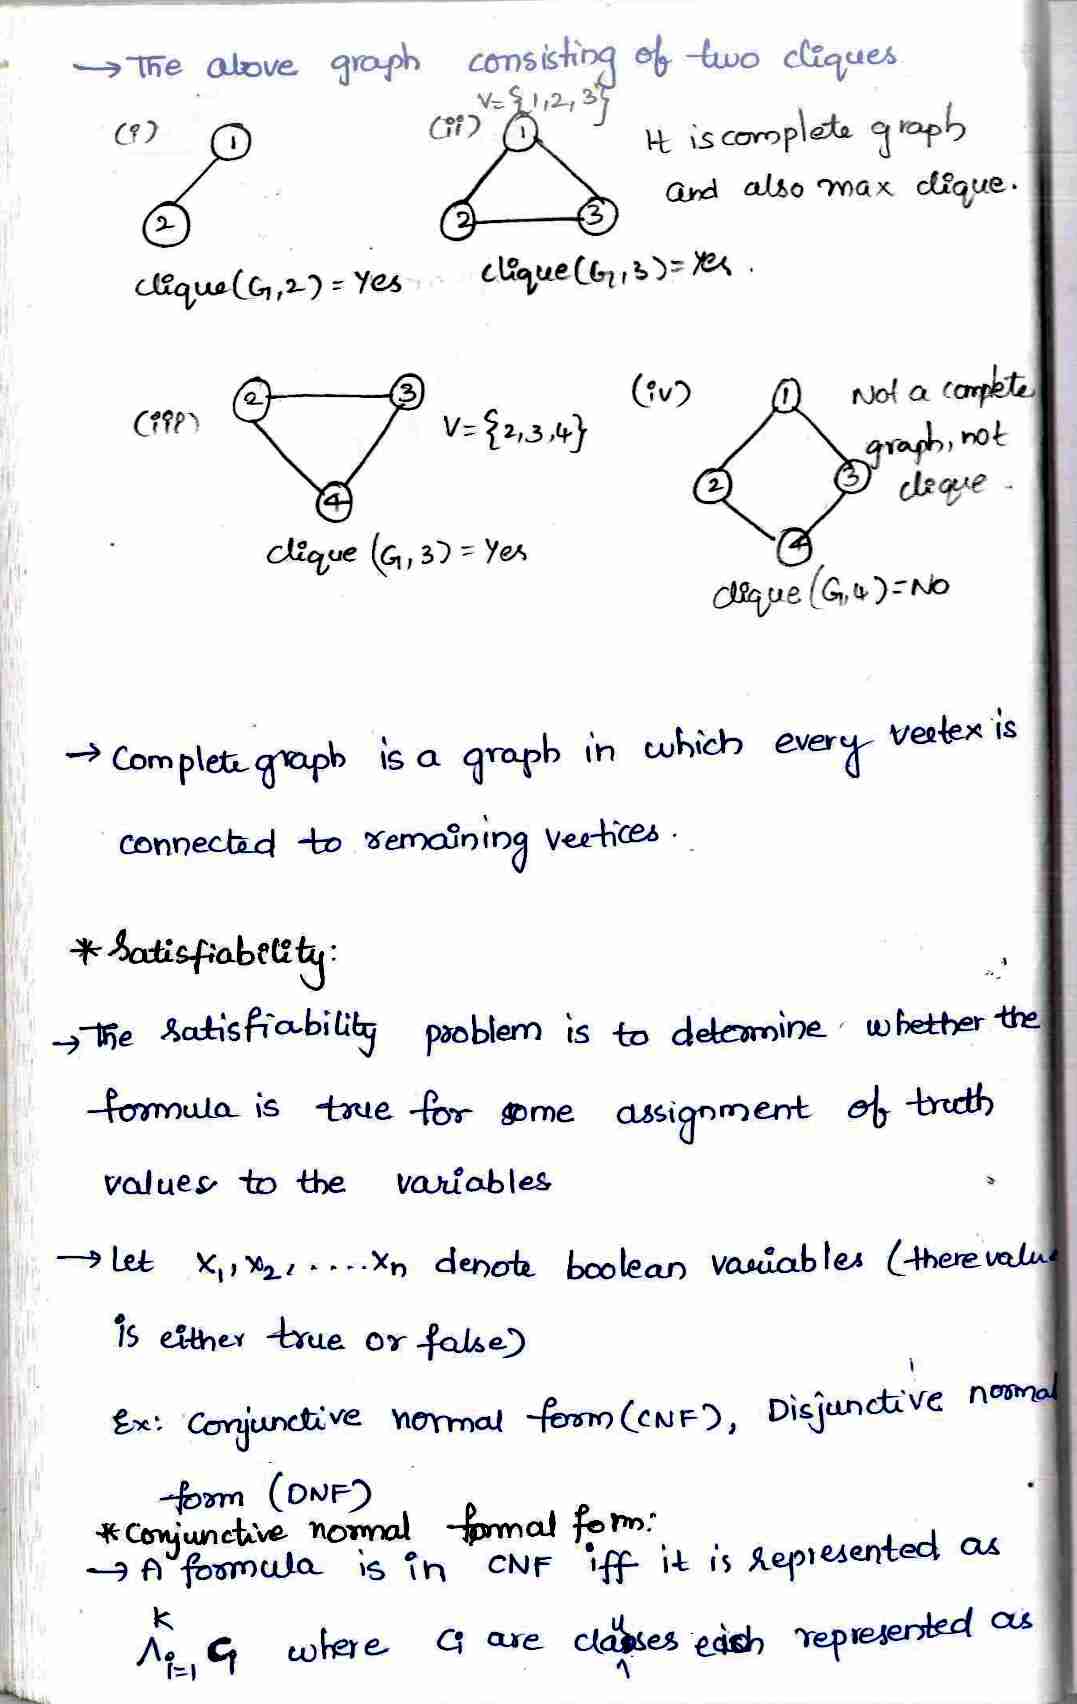 → The above graph consisting of two cliques
V={1,2,3}
(i) 1 2
(ii) 1 2 3
It is complete graph
and also max clique.
clique(G,2) = Yes
clique(G,3) = Yes.
(iii) 2 3 4
V={2,3,4}
clique (G,3) = Yes
(iv) 1 2 3 4
Not a complete
graph, not
clique.
clique (G,4) = No
→ Complete graph is a graph in which every vertex is
connected to remaining vertices.
* Satisfiability:
→ The satisfiability problem is to determine whether the
formula is true for some assignment of truth
values to the variables
→ let x₁, x₂, ..... xn denote boolean variables (there value
is either true or false)
Ex: Conjunctive normal form (CNF), Disjunctive normal
form (DNF)
* Conjunctive normal formal form:
→ A formula is in CNF iff it is represented as
k
Λi=1 Ci where Ci are clauses each represented as